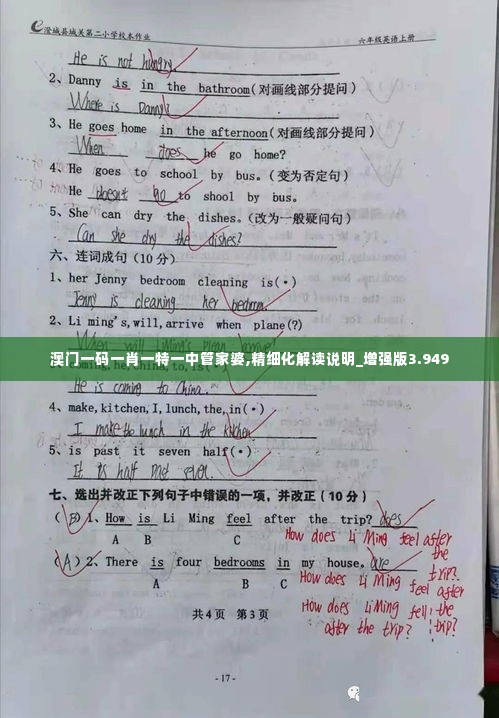 澄城县城关第二小学校本作业 六年级英语上册
He is not hungry.
2、Danny is in the bathroom(对画线部分提问)
Where is Danny?
3、He goes home in the afternoon(对画线部分提问)
When does he go home?
4、He goes to school by bus。(变为否定句)
He doesn't go to shool by bus.
5、She can dry the dishes。(改为一般疑问句)
Can she dry the dishes?
六、连词成句(10分)
1、her Jenny bedroom cleaning is(•)
Jenny is cleaning her bedroom.
2、Li ming's,will,arrive when plane(?)
澳门一码一肖一特一中管家婆,精细化解读说明_增强版3.949
He is coming to China.
4、make,kitchen,I,lunch,the,in(•)
I make the lunch in the kitchen
5、is past it seven half(•)
It is half past seven.
七、选出并改正下列句子中错误的一项，并改正(10分)
(B)1、How is Li Ming feel after the trip? does
A B C
How does Li Ming feel after the trip?
(A)2、There is four bedrooms in my house。are
A B C
How does Li Ming feel after the trip?
How does Li Ming fell after the trip?
共4页 第3页
-17-